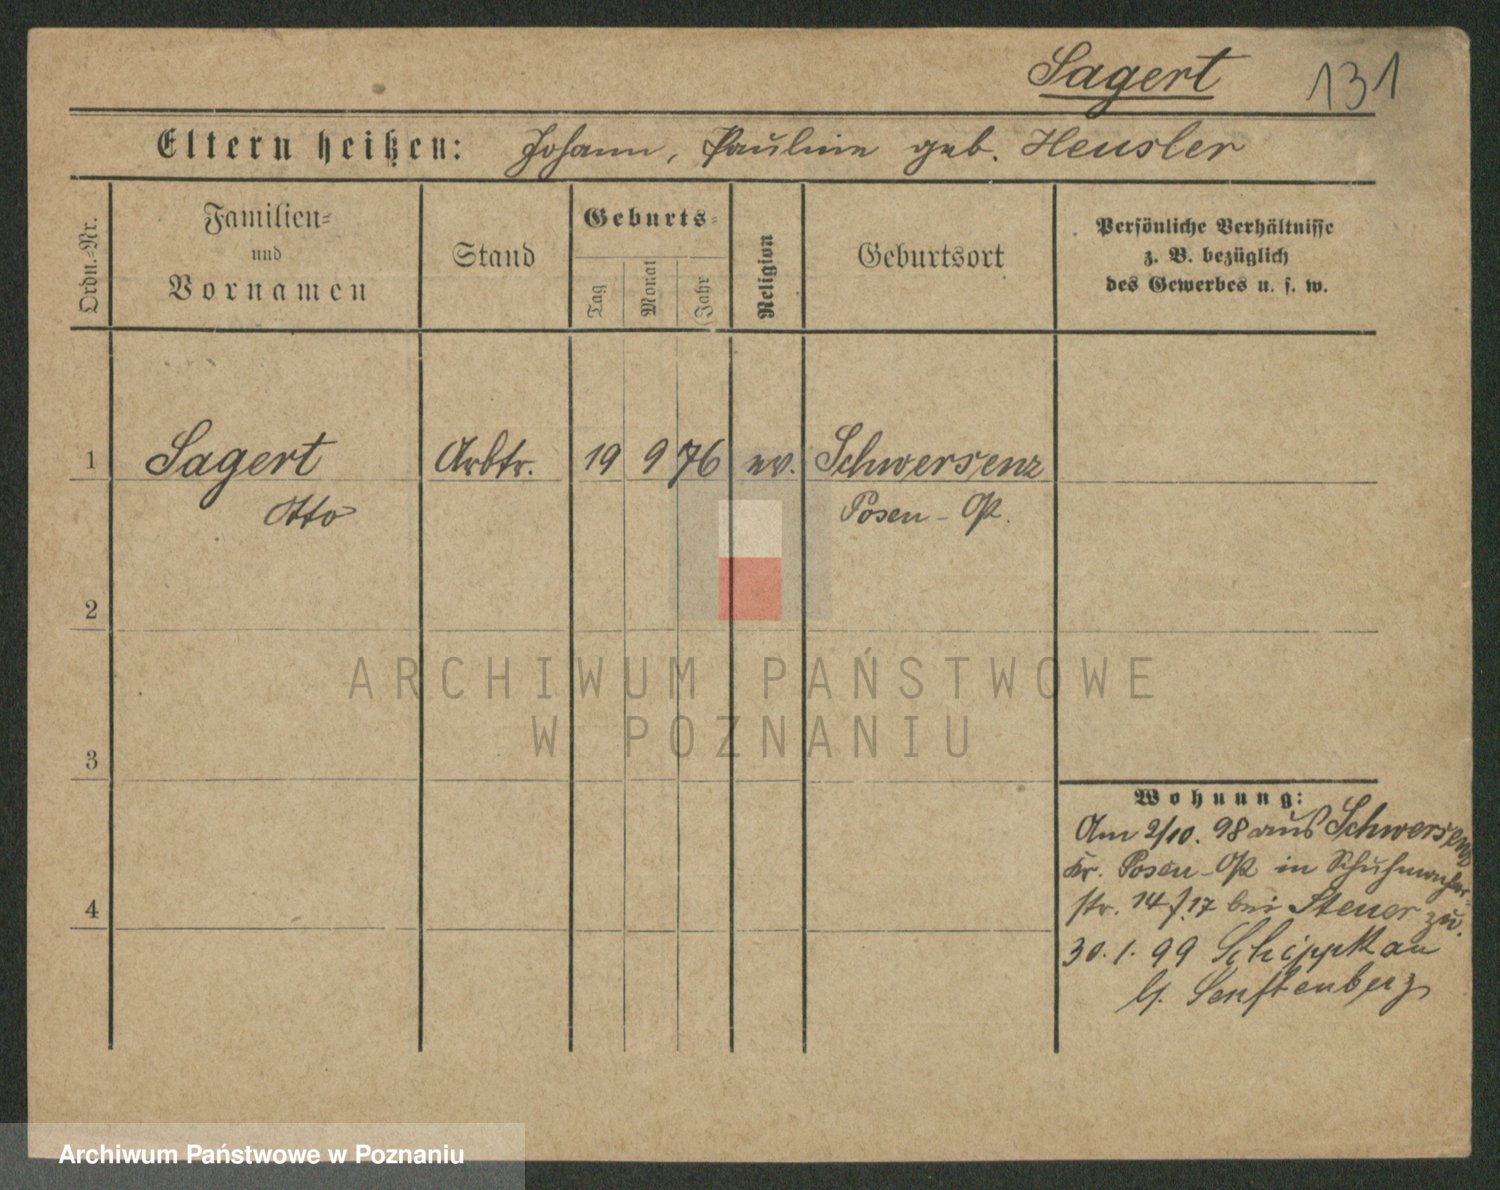 Sagert 131
Eltern heißen: Johann, Pauline geb. Heusler
Ordn.=Nr.
Familien=
und
Vornamen
Stand
Geburts=
Tag
Monat
Jahr
Religion
Geburtsort
Persönliche Verhältnisse
z. B. bezüglich
des Gewerbes u. s. w.
1 Sagert Arbtr. 19 9 76 ev. Schwersenz
Otto Posen - Ost.
2
3
4
Wohnung:
Am 2/10. 98 aus Schwersenz
Kr. Posen - Ost in Schuhmacher-
str. 14 / 17 bei Steuer zu.
30. 1. 99 Schippkau
b. Senftenberg
ARCHIWUM PAŃSTWOWE
W POZNANIU
Archiwum Państwowe w Poznaniu